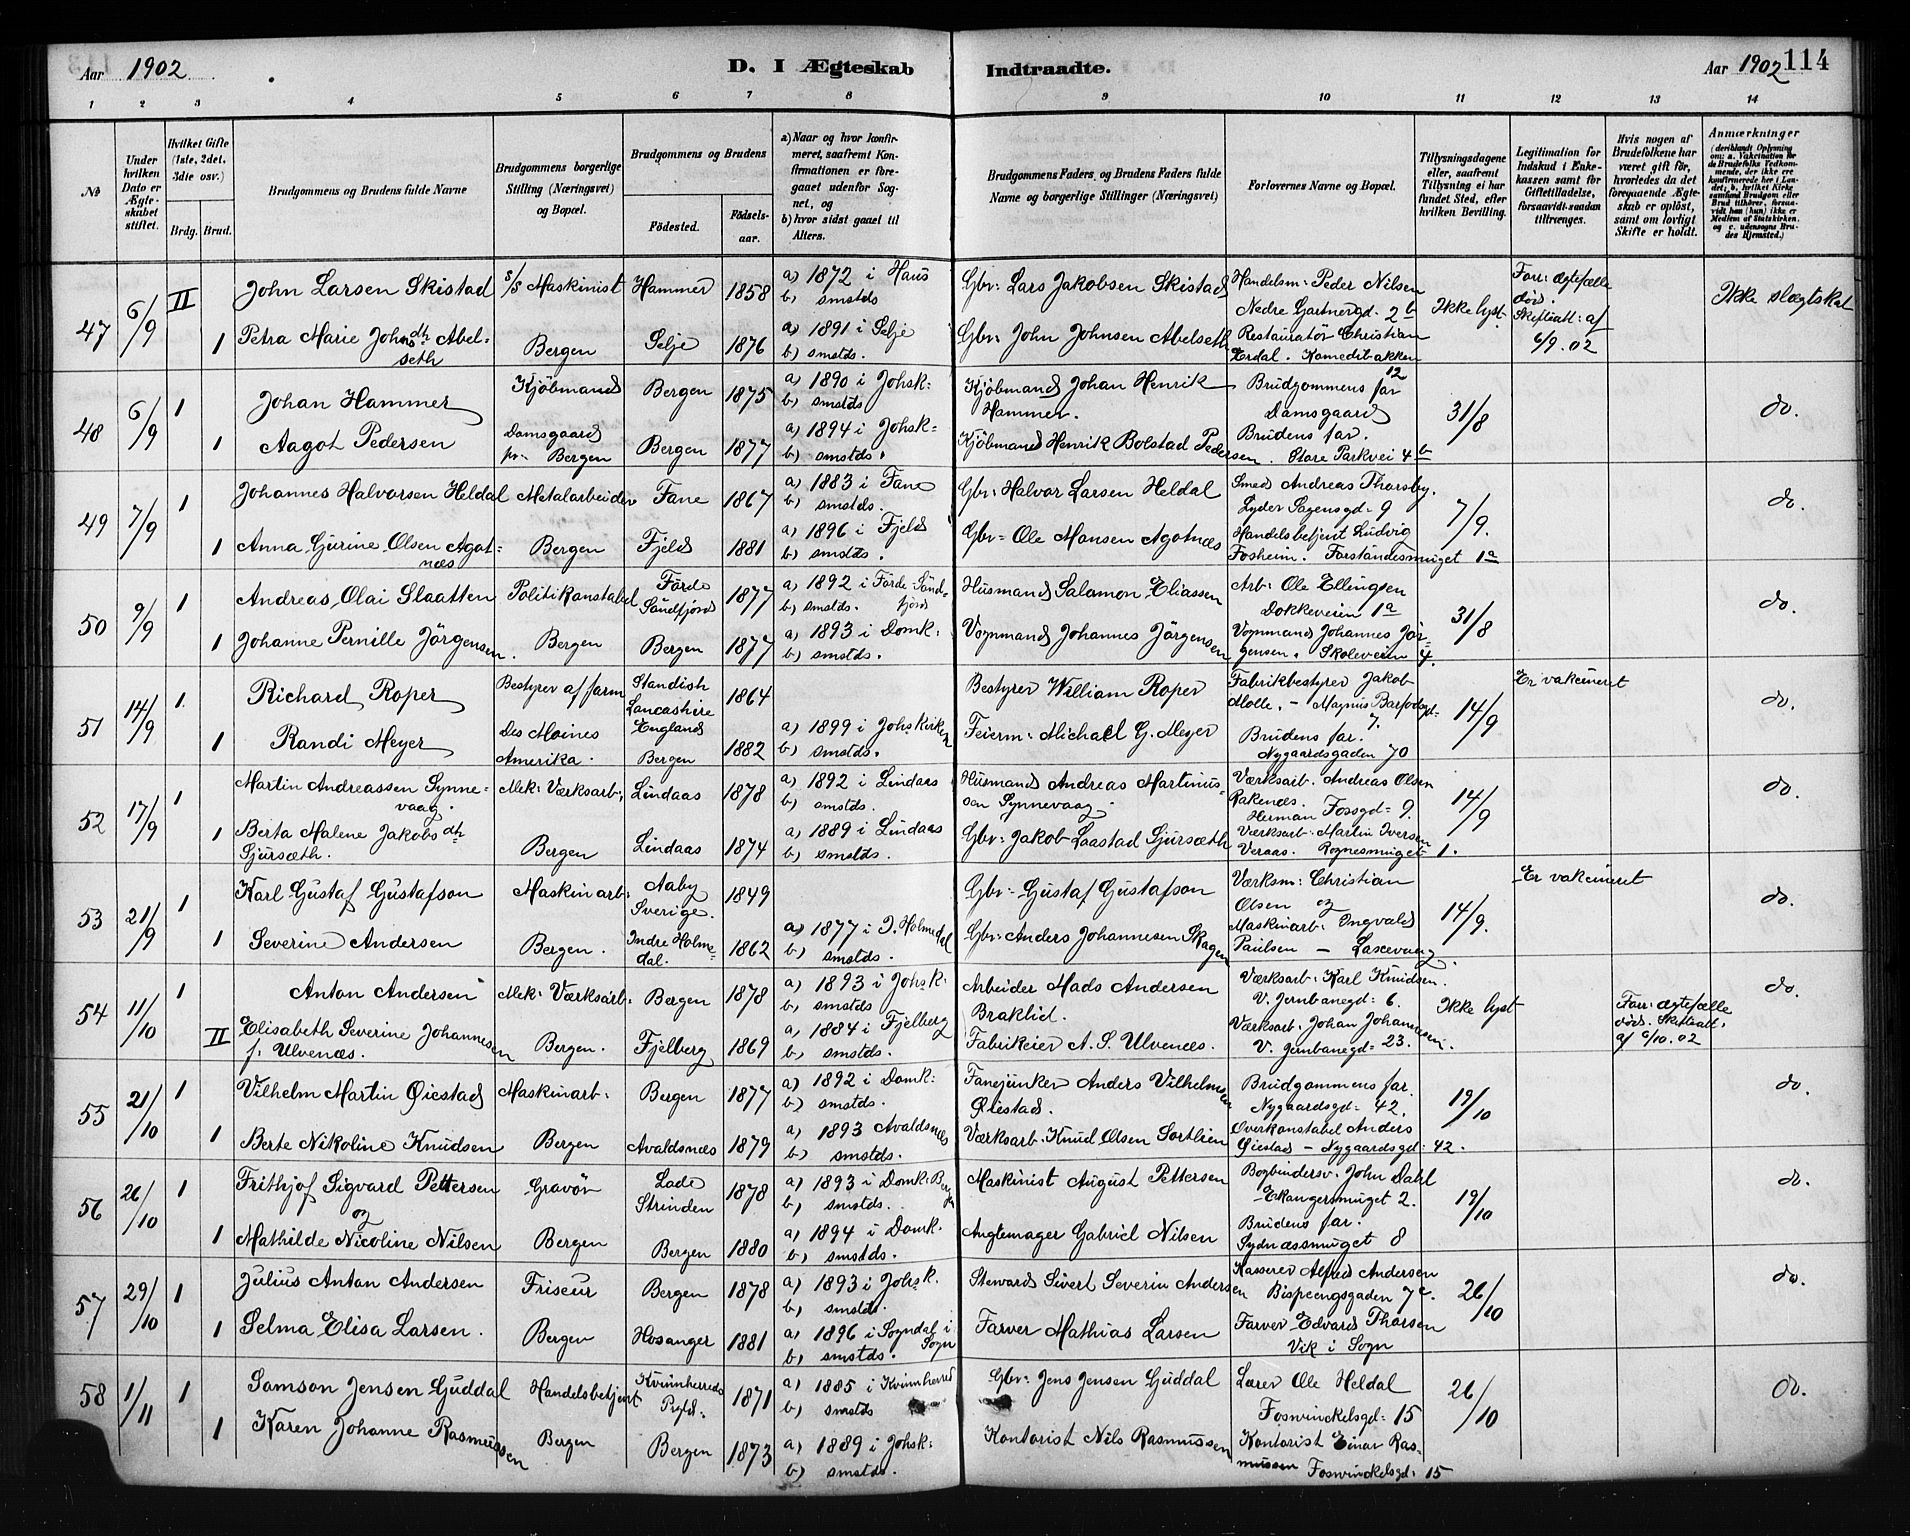 Aar 1902 D. I Ægteskab Indtraadte. Aar 1902 114
1 2 3 4 5 6 7 8 9 10 11 12 13 14
No
Under hvilken Dato er Ægteskabet stiftet.
Hvilket Gifte (1ste, 2det, 3die osv.)
Brdg. Brud.
Brudgommens og Brudens fulde Navne
Brudgommens borgerlige Stilling (Næringsvei) og Bopæl.
Brudgommens og Brudens
Fødested. Fødselsaar.
a) Naar og hvor konfirmeret, saafremt Konfirmationen er foregaaet udenfor Sognet, og
b) hvor sidst gaaet til Alters.
Brudgommens Faders og Brudens Faders fulde Navne og borgerlige Stillinger (Næringsvei)
Forlovernes Navne og Bopæl.
Tillysningsdagene eller, saafremt Tillysning ei har fundet Sted, efter hvilken Bevilling.
Legitimation for Indskud i Enkekassen samt for Giftetilladelse, forsaavidt saadan tiltrænges.
Hvis nogen af Brudefolkene har været gift før, hvorledes da det foregaaende Ægteskab er opløst, samt om lovligt Skifte er holdt.
Anmærkninger (deriblandt Oplysning om: a. Vakcination for de Brudefolks Vedkommende, der ikke ere konfirmerede her i Landet; b. hvilket Kirkesamfund Brudgom eller Brud tilhører, forsaavidt han (hun) ikke er Medlem af Statskirken, og c. udensogns Brudes Hjemsted.)
47 6/9 II John Larsen Skistad s/s Maskinist Hammer 1858 a) 1872 i Haus b) smstds Gbr: Lars Jakobsen Skistad Handelsm: Peder Nilsen Nedre Gartnergd. 2 b Ikke lyst. Forr: ægtefælle død. Skifteatt: af 6/9.02 Ikke slægtskab
1 Petra Marie Johnsdh Abelseth Bergen Selje 1876 a) 1891 i Selje b) smstds. Gbr: John Johnsen Abelseth Restauratør Christian Erdal. Komediebakken 12
48 6/9 1 Johan Hammer Kjöbmand Bergen 1875 a) 1890 i Johsk: b) smstds Kjöbmand Johan Henrik Hammer. Brudgommens far Damsgaard 31/8 do.
1 Aagot Pedersen Damsgaard pr. Bergen Bergen 1877 a) 1894 i Johsk= b) smstds. Kjöbmand Henrik Bolstad Pedersen. Brudens far. Store Parkvei 4 b
49 7/9 1 Johannes Halvorsen Heldal Metalarbeider Fane 1867 a) 1883 i Fane b) smstds. Gbr: Halvor Larsen Heldal Smed Andreas Thorsby. Lyder Sagensgd: 9 7/9. do.
1 Anna Gurine Olsen Agotnæs Bergen Fjeld 1881 a) 1896 i Fjeld b) smstds. Gbr= Ole Monsen Agotnæs Handelsbetjent Ludvig Fosheim. Forstandersmuget 1 a
50 9/9 1 Andreas Olai Slaatten Politikonstabel Förde Söndfjord 1877 a) 1892 i Förde-Söndfjord b) smstds. Husmand Salomon Eliassen Arb: Ole Ellingsen Dokkeveien 1 a 31/8 do.
1 Johanne Pernille Jörgensen. Bergen Bergen 1877 a) 1893 i Domk: b) smstds. Vognmand Johannes Jörgensen Vognmand Johannes Jörgensen. Skoleveien 4.
51 14/9 1. Richard Roper Bestyrer af farm Standish Lancashire England 1864 Bestyrer William Roper Fabrikbestyrer Jakob Molle. - Magnus Barfodsgd. 7. 14/9 Er vakcineret do.
1 Randi Meyer Des Moines Amerika. Bergen 1882 a) 1899 i Johskirken b) smstds. Feierm: Michael G. Meyer Brudens far. Nygaardsgaden 70
52 17/9 1 Martin Andreassen Synnevaag. Mek: Værksarb: Lindaas 1878 a) 1892 i Lindaas b) smstds. Husmand Andreas Martinussen Synnevaag. Værksarb. Andreas Olsen Rakenæs. Herman Fossgd= 9. 14/9 do.
1 Berta Malene Jakobsdh Sjursæth. Bergen Lindaas 1874 a) 1889 i Lindaas b) smstds. Gbr: Jakob Laastad Sjursæth Værksarb: Martin Iversen Veraas. Rognesmuget 1.
53 21/9 1 Karl Gustaf Gustafson Maskinarb: Aaby Sverige. 1849 Gbr: Gustaf Gustafson Værksm: Christian Olsen og 14/9. Er vakcineret do.
1 Severine Andersen Bergen. Indre Holmedal. 1862 a) 1877 i I. Holmedal b) smstds. Gbr: Anders Johannesen Skagen Maskinarb: Ingvald Paulsen - Laxevaag.
54 11/10 1 Anton Andersen Mek: Værksarb: Bergen 1878 a) 1893 i Johsk. b) smstds Arbeider Mads Andersen Braklid. Værksarb: Karl Knudsen. V. Jernbanegd: 6. Ikke lyst Forr: ægtefælle død. Skifteatt. af 6/10.02 do.
II Elisabeth Severine Johannesen f. Ulvenæs. Bergen. Fjelberg 1869 a) 1884 i Fjelberg b) smstds. Fabrikeier A. S. Ulvenæs. Værksarb. Johan Johannessen. V. Jernbanegd= 23.
55 21/10 1 Vilhelm Martin Øiestad Maskinarb: Bergen 1877 a) 1892 i Domk: b) smstds. Fanejunker Anders Vilhelmsen Øiestad. Brudgommens far. Nygaardsgd: 42. 19/10 do.
1 Berte Nikoline Knudsen Bergen Avaldsnæs 1879 a) 1893 Avaldsnæs b) smstds. Værksarb. Knud Olsen Sortlien Overkonstabel Anders Øiestad - Nygaardsgd: 42.
56 26/10 1 Frithjof Sigvard Pettersen og Gravör Lade Strinden 1878 a) 1893 i Domk: Bergen b) smstds. Maskinist August Pettersen Bogbindersv. John Dahl Ekangersmuget 2. 19/10 do.
1 Mathilde Nicoline Nilsen Bergen Bergen 1880 a) 1894 i Domk. b) smstds. Angtemager Gabriel Nilsen Brudens far. Sydnæssmuget 8
57 29/10 1 Julius Anton Andersen Friseur Bergen 1878 a) 1893 i Johsk. b) smstds. Steward Sivert Severin Andersen Kasserer Alfred Andersen Bispeengsgaden 7 c. 26/10 do.
1 Selma Elisa Larsen. Bergen Hosanger 1881 a) 1896 i Sogndal i Sogn b) smstds. Farver Mathias Larsen Farver Edvard Thorsen Vik i Sogn
58 1/11 1 Samson Jensen Guddal Handelsbetjent Kvinnherreds Prgld. 1871 a) 1885 i Kvinnherred b) smstds Gbr: Jens Jensen Guddal Lærer Ole Heldal Foswinckelsgd: 15 26/10 do.
1 Karen Johanne Rasmussen Bergen Bergen 1873 a) 1889 i Johsk: b) smstds. Kontorist Nils Rasmussen Kontorist Einar Rasmussen Foswinckelsgd: 15